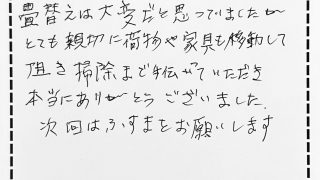 畳替えは大変だと思っていましたが
とても親切に荷物や家具も移動して
頂き掃除まで手伝がていただき
本当にありがとうございました。
次回はふすまをお願いします